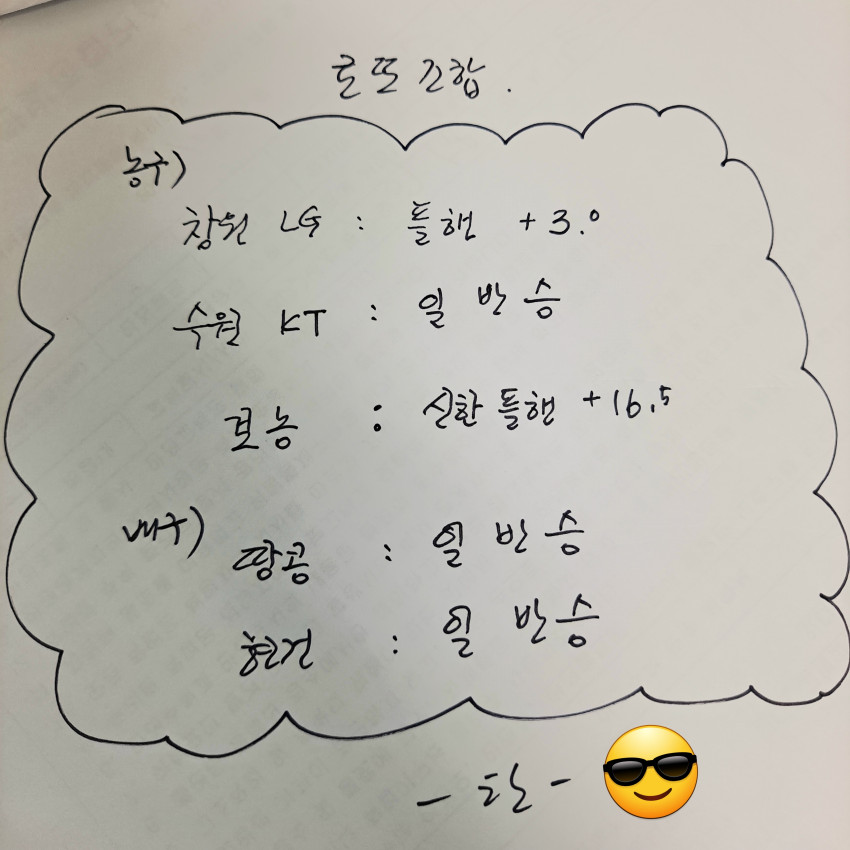 로또 조합.
농구)
창원 LG : 플핸 +3.0
수원 KT : 일반승
보농 : 신한 플핸 +16.5
배구)
땅콩 : 일반승
현건 : 일반승
- 탄 -